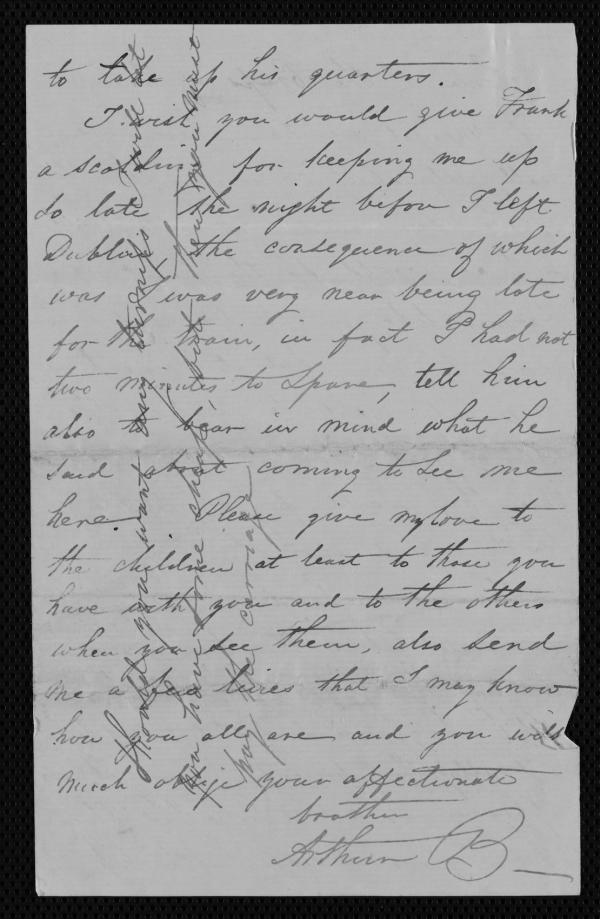 to take up his quarters.
I wish you would give Frank
a scolding for keeping me up
so late the night before I left
Dublin the consequence of which
was I was very near being late
for the train, in fact I had not
two minutes to spare, tell him
also to bear in mind what he
said about coming to see me
here. Please give my love to
the children at least to those you
have with you and to the others
when you see them, also send
me a few lines that I may know
how you all are and you will
much oblige your affectionate
brother
Arthur B
Should you want any
you have some
pay the carriage